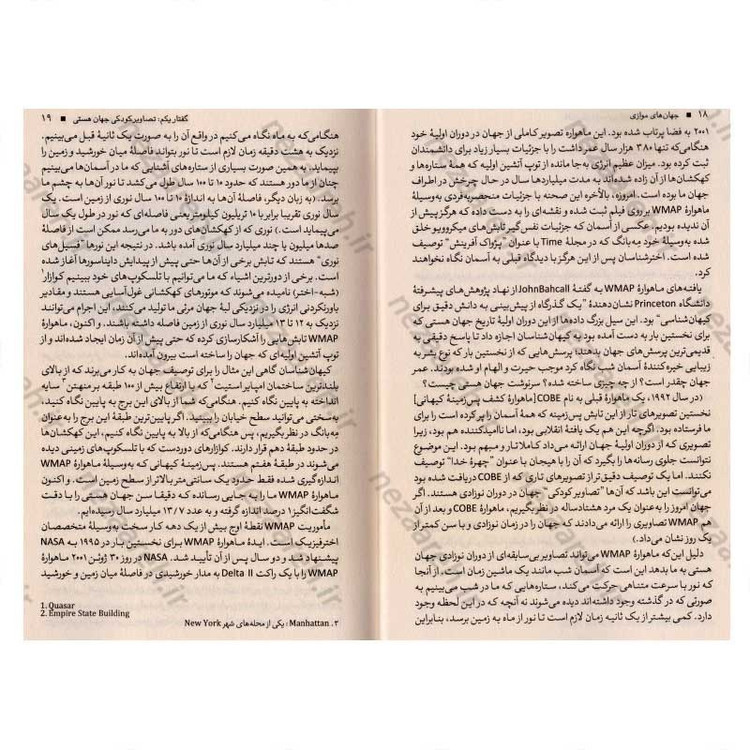 ۱۸ ■ جهان‌های موازی
۲۰۰۱ به فضا پرتاب شده بود. این ماهواره تصویر کاملی از جهان در دوران اولیهٔ خود
هنگامی‌که تنها ۳۸۰ هزار سال عمر داشت را با جزئیات بسیار زیاد برای دانشمندان
ثبت کرده بود. میزان عظیم انرژی به‌جا مانده از توپ آتشین اولیه که ستاره‌ها و
کهکشان‌ها از آن زاده شده‌اند به مدت میلیاردها سال در حال چرخش در اطراف
جهان ما بوده است. امروزه، بالأخره این صحنه با جزئیات منحصربه‌فردی به‌وسیلهٔ
ماهوارهٔ WMAP بر روی فیلم ثبت شده و نقشه‌ای را به دست داده که هرگز پیش از
آن ندیده بودیم. عکسی از آسمان که جزئیات نفس‌گیر تابش‌های میکروویو خلق
شده به‌وسیلهٔ خود مه‌بانگ که در مجلهٔ Time با عنوان "پژواک آفرینش" توصیف
شده است. اخترشناسان پس از این هرگز با دیدگاه قبلی به آسمان نگاه نخواهند
کرد.
یافته‌های ماهوارهٔ WMAP به گفتهٔ JohnBahcall از نهاد پژوهش‌های پیشرفتهٔ
دانشگاه Princeton نشان‌دهندهٔ "یک گذرگاه از پیش‌بینی به دانش دقیق برای
کیهان‌شناسی" بود. این سیل بزرگ داده‌ها از این دوران اولیهٔ تاریخ جهان هستی که
برای نخستین بار به دست آمده بود به کیهان‌شناسان اجازه داد تا پاسخ دقیقی به
قدیمی‌ترین پرسش‌های جهان بدهند، پرسش‌هایی که از نخستین بار که نوع بشر به
زیبایی خیره‌کنندهٔ آسمان شب نگاه کرد موجب حیرت و الهام او شده بودند. عمر
جهان چقدر است؟ از چه چیزی ساخته شده؟ سرنوشت جهان هستی چیست؟
(در سال ۱۹۹۲، یک ماهوارهٔ قبلی به نام COBE [ماهوارهٔ کشف پس‌زمینهٔ کیهانی]
نخستین تصویرهای تار از این تابش پس‌زمینه که همهٔ آسمان را پر کرده است را برای
ما فرستاده بود. اگرچه این هم یک یافتهٔ انقلابی بود، اما ناامیدکننده هم بود، زیرا
تصویری که از دوران اولیهٔ جهان ارائه می‌داد کاملاً تار و مبهم بود. این موضوع
نتوانست جلوی رسانه‌ها را بگیرد که آن را با هیجان با عنوان "چهرهٔ خدا" توصیف
نکنند. اما یک توصیف دقیق‌تر از تصویرهای تاری که از COBE دریافت شده بود
می‌توانست این باشد که آن‌ها "تصاویر کودکی" جهان در دوران نوزادی هستند. اگر
جهان امروز را به‌عنوان یک مرد هشتادساله در نظر بگیریم، ماهوارهٔ COBE و بعد از آن
هم WMAP تصاویری را ارائه می‌دادند که جهان را در زمان نوزادی و با سن کمتر از
یک روز نشان می‌داد.)
دلیل این‌که ماهوارهٔ WMAP می‌تواند تصاویر بی‌سابقه‌ای از دوران نوزادی جهان
هستی به ما بدهد این است که آسمان شب مانند یک ماشین زمان است. از آنجا
که نور با سرعت متناهی حرکت می‌کند، ستاره‌هایی که ما در شب می‌بینیم به
صورتی که در گذشته وجود داشته‌اند دیده می‌شوند نه آنچه که در این لحظه وجود
دارد. کمی بیشتر از یک ثانیه زمان لازم است تا نور از ماه به زمین برسد، بنابراین
گفتار یکم: تصاویر کودکی جهان هستی ■ ۱۹
هنگامی‌که به ماه نگاه می‌کنیم در واقع آن را به صورت یک ثانیهٔ قبل می‌بینیم.
به حدود هشت دقیقه زمان لازم است تا نور بتواند فاصلهٔ میان خورشید و زمین را
بپیماید. به همین صورت بسیاری از ستاره‌های آشنایی که ما در آسمان‌ها می‌بینیم
چنان از ما دور هستند که حدود ۱۰ تا ۱۰۰ سال طول می‌کشد تا نور آن‌ها به چشم ما
برسد. (به زبان دیگر، فاصلهٔ آن‌ها به اندازهٔ ۱۰ تا ۱۰۰ سال نوری از زمین است. یک
سال نوری تقریبا برابر با ۱۰ تریلیون کیلومتر یعنی فاصله‌ای که نور در طول یک سال
می‌پیماید است.) نوری که از کهکشان‌های دور به ما می‌رسد ممکن است از فاصلهٔ
صدها میلیون یا چند میلیارد سال نوری آمده باشد. در نتیجه این نورها "فسیل‌های
نوری" هستند که تابش برخی از آن‌ها حتی پیش از پیدایش دایناسورها آغاز شده
است. برخی از دورترین اشیاء که ما می‌توانیم با تلسکوپ‌های خود ببینیم کوازار¹
(شبه-اختر) نامیده می‌شوند که موتورهای کهکشانی غول‌آسایی هستند و مقادیر
باورنکردنی انرژی را در نزدیکی لبهٔ جهان مرئی ما تولید می‌کنند، این اجرام می‌توانند
نزدیک به ۱۲ تا ۱۳ میلیارد سال نوری از زمین فاصله داشته باشند. و اکنون، ماهوارهٔ
WMAP تابش‌هایی را آشکارسازی کرده که حتی پیش از آن زمان ایجاد شده‌اند و از
توپ آتشین اولیه‌ای که جهان را ساخته است بیرون آمده‌اند.
کیهان‌شناسان گاهی این مثال را برای توصیف جهان به کار می‌برند که از بالای
بلندترین ساختمان امپایر استیت² که با ارتفاع بیش از ۱۰۰ طبقه بر منهتن³ سایه
انداخته به پایین نگاه کنیم. هنگامی‌که شما از بالای این برج به پایین نگاه کنید،
به‌سختی می‌توانید سطح خیابان را ببینید. اگر پایین‌ترین طبقهٔ این برج را به‌عنوان
مه‌بانگ در نظر بگیریم، پس هنگامی‌که از بالا به پایین نگاه کنیم، این کهکشان‌ها
در حدود طبقهٔ دهم قرار دارند. کوازارهای دوردست که با تلسکوپ‌های زمینی دیده
می‌شوند در طبقهٔ هفتم هستند. پس‌زمینهٔ کیهانی که به‌وسیلهٔ ماهوارهٔ WMAP
اندازه‌گیری شده فقط حدود یک سانتی‌متر بالاتر از سطح زمین است. و اکنون
ماهوارهٔ WMAP ما را به جایی رسانده که دقیقا سن جهان هستی را با دقت
شگفت‌انگیز ۱ درصد اندازه گرفته و به عدد ۱۳/۷ میلیارد سال رسیده‌ایم.
مأموریت WMAP نقطهٔ اوج بیش از یک دهه کار سخت به‌وسیلهٔ متخصصان
اخترفیزیک است. ایدهٔ ماهوارهٔ WMAP برای نخستین بار در ۱۹۹۵ به NASA
پیشنهاد شد و دو سال پس از آن تأیید شد. NASA در روز ۳۰ ژوئن ۲۰۰۱ ماهوارهٔ
WMAP را با یک راکت Delta II به مدار خورشیدی در فاصلهٔ میان زمین و خورشید
1. Quasar
2. Empire State Building
۳. Manhattan: یکی از محله‌های شهر New York
nezaareh.ir